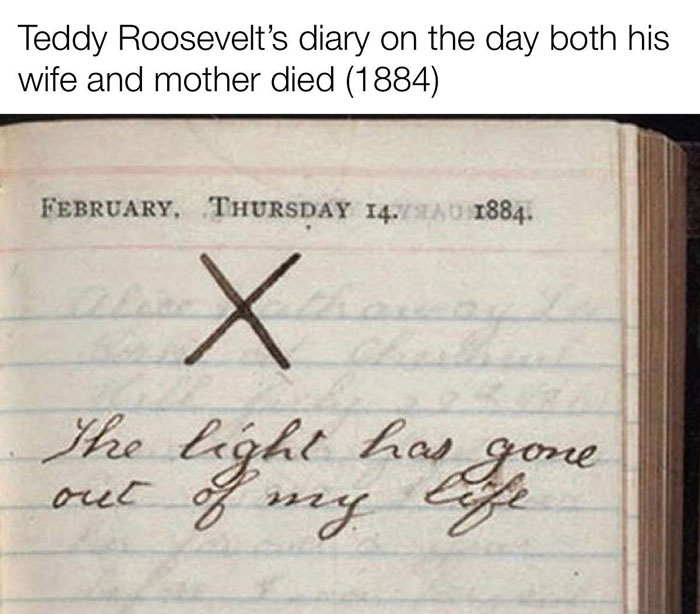 Teddy Roosevelt's diary on the day both his
wife and mother died (1884)
FEBRUARY, THURSDAY 14. 1884.
X
The light has gone
out of my life